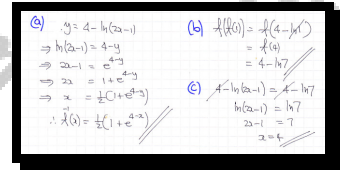 (a) y = 4 - ln(2x-1)
⇒ ln(2x-1) = 4-y
⇒ 2x-1 = e^(4-y)
⇒ 2x = 1 + e^(4-y)
⇒ x = ½(1+e^(4-y))
∴ f⁻¹(x) = ½(1 + e^(4-x))
(b) f(f(1)) = f(4-ln1)
= f(4)
= 4 - ln7
(c) 4 - ln(2x-1) = 4 - ln7
ln(2x-1) = ln7
2x-1 = 7
x = 4